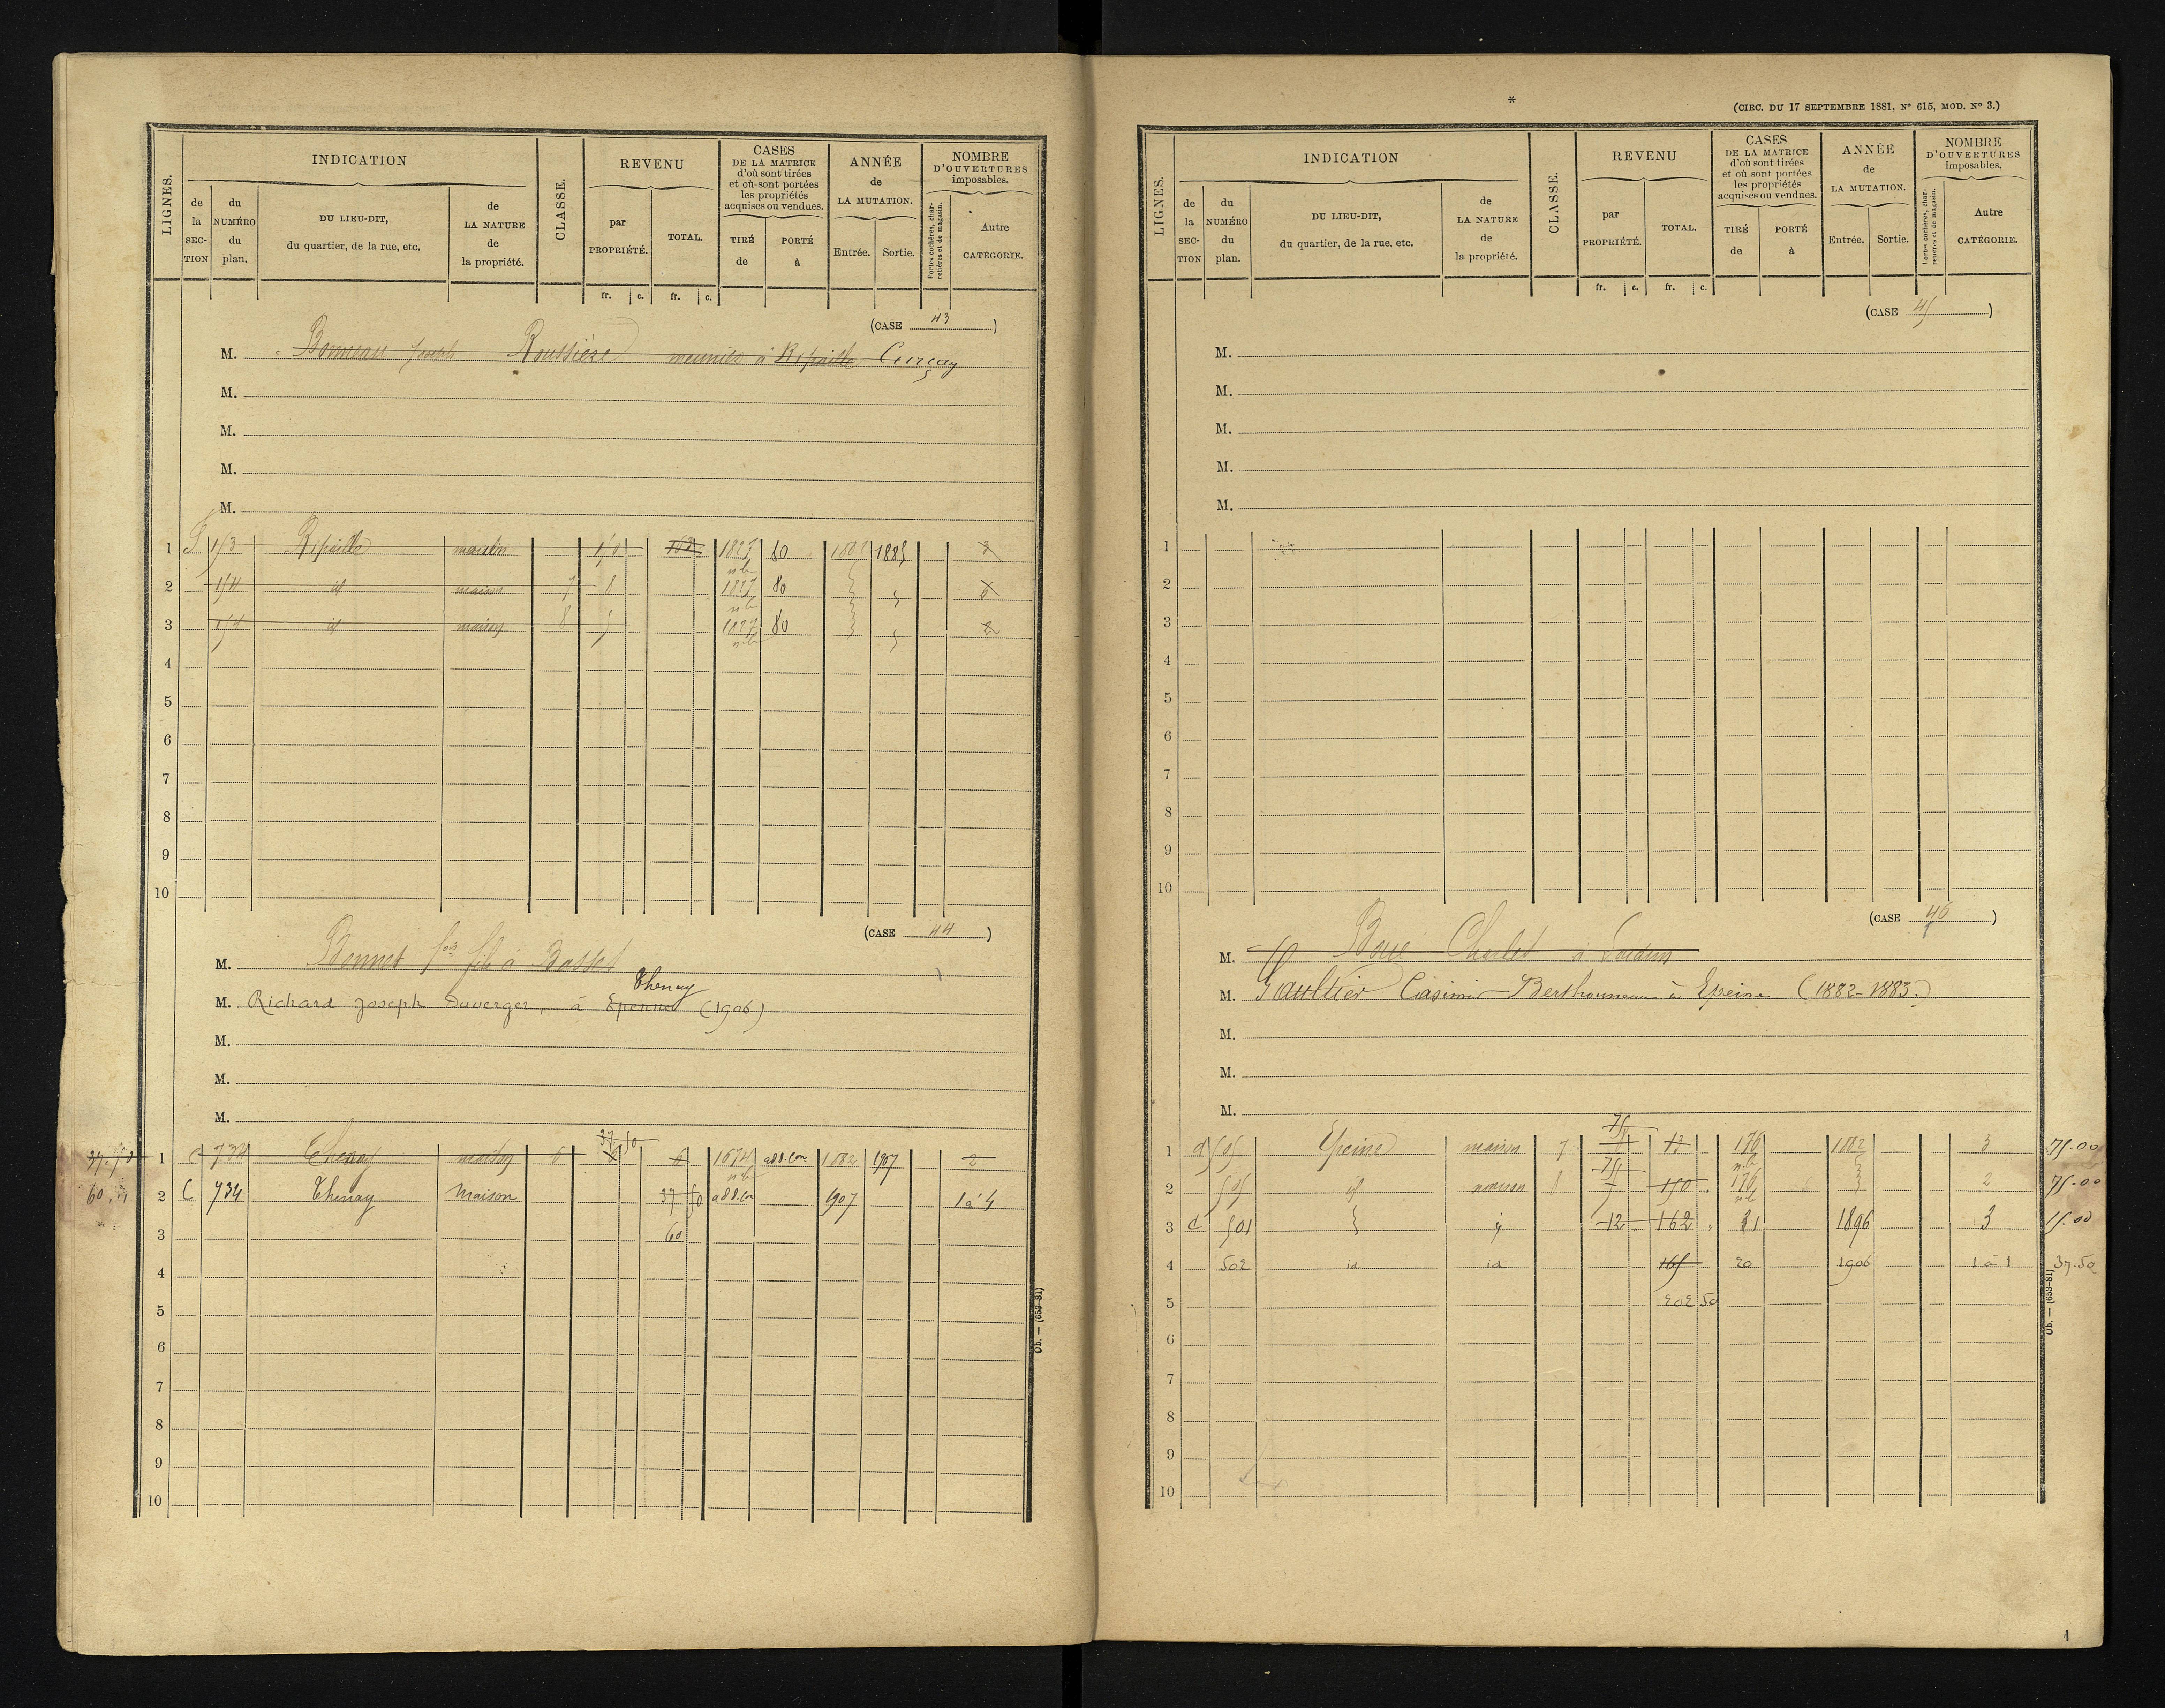 LIGNES.
INDICATION
de la SECTION
du NUMÉRO du plan.
DU LIEU-DIT, du quartier, de la rue, etc.
de LA NATURE de la propriété.
CLASSE.
REVENU
par PROPRIÉTÉ.
TOTAL.
CASES DE LA MATRICE d'où sont tirées et où sont portées les propriétés acquises ou vendues.
TIRÉ de
PORTÉ à
ANNÉE de LA MUTATION.
Entrée.
Sortie.
NOMBRE D'OUVERTURES imposables.
Portes cochères, charretières et de magasin.
Autre CATÉGORIE.
fr. c. fr. c.
(CASE 43)
M. Bonneau Joseph Roussière meunier à Ripaille Curçay
M.
M.
M.
M.
1 153 Ripaille moulin 150 1827 80 1882 1885
2 154 id maison 7 8 1827 80
3 154 id maison 8 5 1827 80 2
4
5
6
7
8
9
10
(CASE 44)
M. Bonnet fois fils à Basset
Thenay
M. Richard Joseph Duverger, à Epennes (1906)
M.
M.
M.
37.50
37.50 1 C 734 Thenay maison 6 6 6 1674 add.con 1882 1907 2
60 2 C 734 Thenay Maison 37 50 add.con 1907 1 à 4
3 60
4
5
6
7
8
9
10
Ob. — (659-81)
*
(CIRC. DU 17 SEPTEMBRE 1881, N° 615, MOD. N° 3.)
LIGNES.
INDICATION
de la SECTION
du NUMÉRO du plan.
DU LIEU-DIT, du quartier, de la rue, etc.
de LA NATURE de la propriété.
CLASSE.
REVENU
par PROPRIÉTÉ.
TOTAL.
CASES DE LA MATRICE d'où sont tirées et où sont portées les propriétés acquises ou vendues.
TIRÉ de
PORTÉ à
ANNÉE de LA MUTATION.
Entrée.
Sortie.
NOMBRE D'OUVERTURES imposables.
Portes cochères, charretières et de magasin.
Autre CATÉGORIE.
fr. c. fr. c.
(CASE 45)
M.
M.
M.
M.
M.
1
2
3
4
5
6
7
8
9
10
(CASE 46)
M. Boue Charles à Loudun
M. Gaultier Casimir Berthonneau à Epeine (1882-1883.)
M.
M.
M.
75
1 d 505 Epeine maison 7 12 176 1882 3 75.00
75
2 505 id maison 8 7 150 176 2 75.00
3 d 501 12 162 31 1896 3 15.00
4 502 id id 165 20 1906 1 à 1 37.50
5 202 50
6
7
8
9
10
Ob. — (659-81)
1